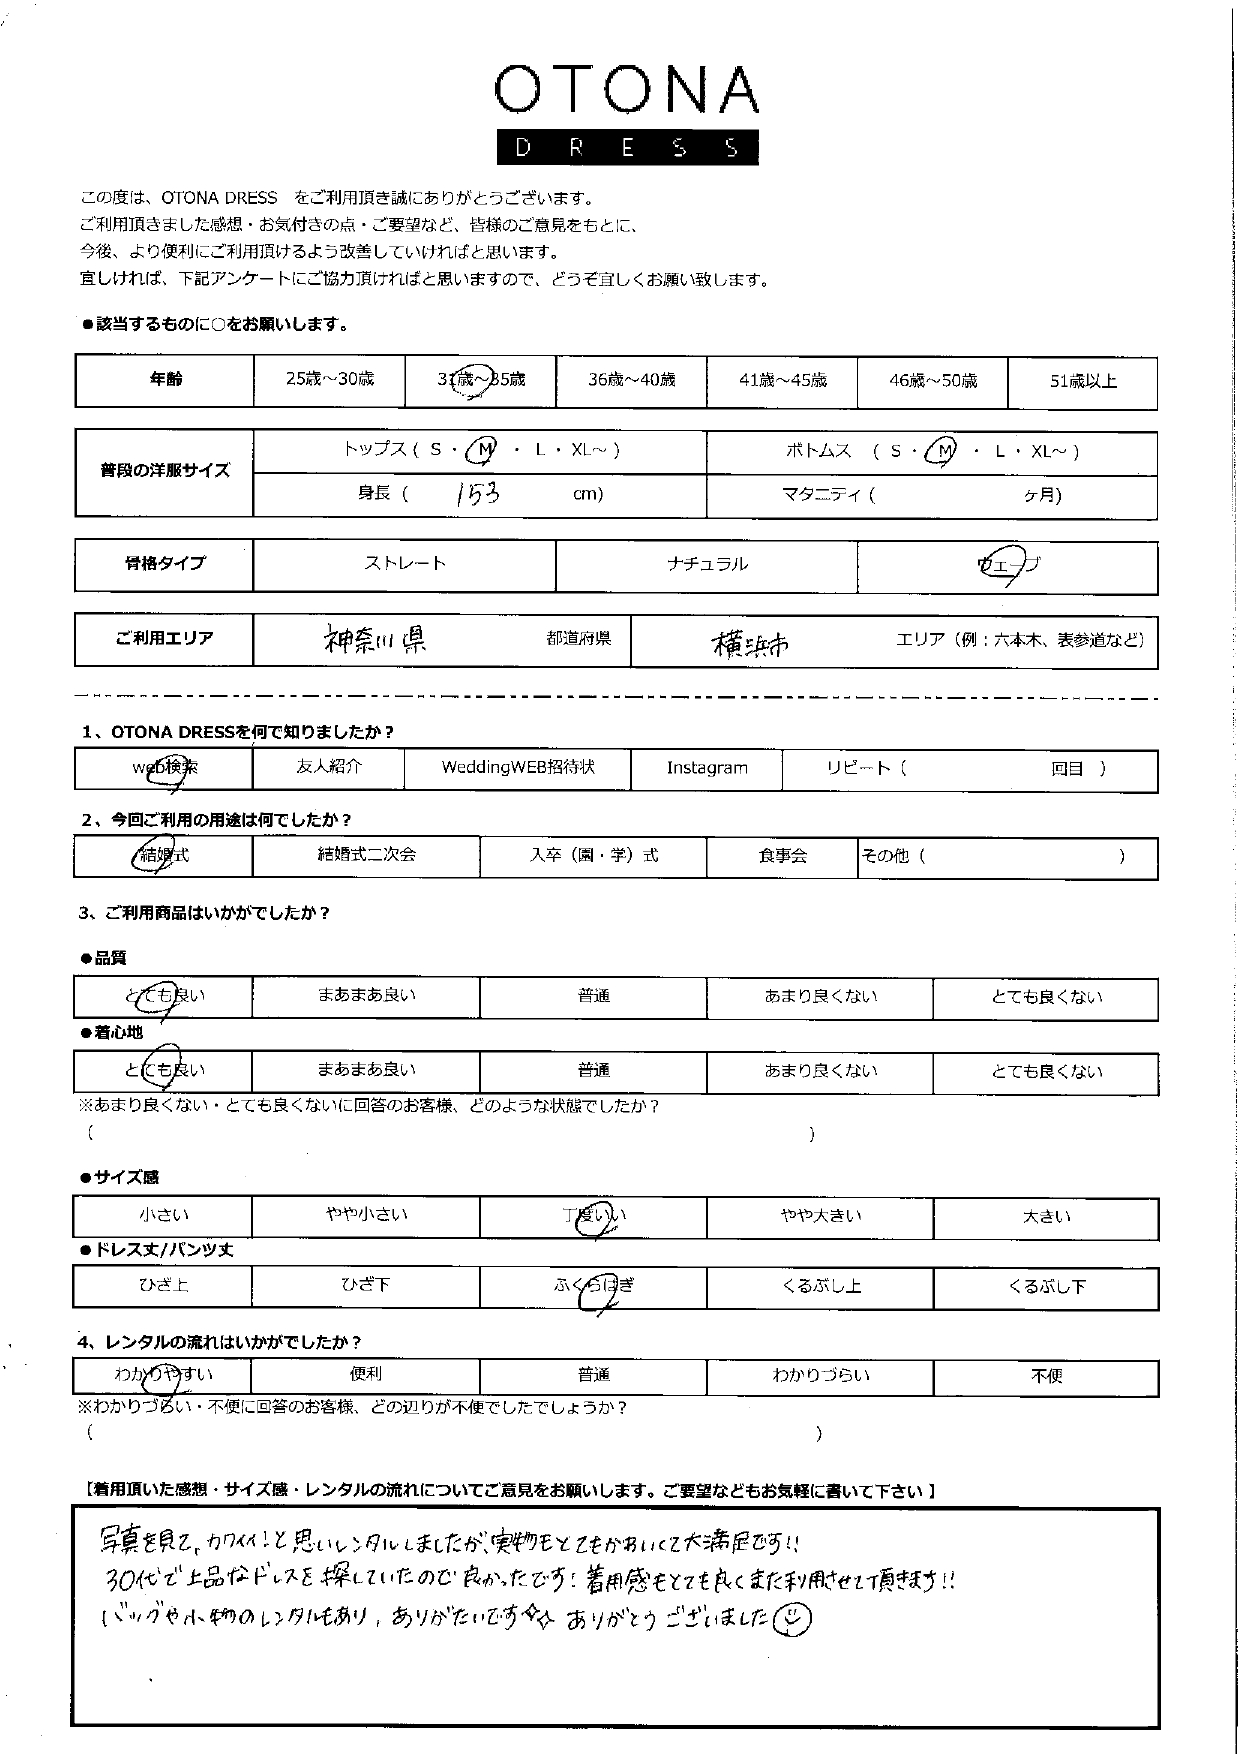 OTONA
DRESS
この度は、OTONA DRESS　をご利用頂き誠にありがとうございます。
ご利用頂きました感想・お気付きの点・ご要望など、皆様のご意見をもとに、
今後、より便利にご利用頂けるよう改善していければと思います。
宜しければ、下記アンケートにご協力頂ければと思いますので、どうぞ宜しくお願い致します。
●該当するものに○をお願いします。
年齢 25歳～30歳 31歳～35歳 36歳～40歳 41歳～45歳 46歳～50歳 51歳以上
普段の洋服サイズ トップス ( S ・ M ・ L ・ XL～ ) ボトムス ( S ・ M ・ L ・ XL～ )
身長 ( 153 cm) マタニティ ( ヶ月)
骨格タイプ ストレート ナチュラル ウェーブ
ご利用エリア 神奈川県 都道府県 横浜市 エリア（例：六本木、表参道など）
1、OTONA DRESSを何で知りましたか？
web検索 友人紹介 WeddingWEB招待状 Instagram リピート ( 回目 )
2、今回ご利用の用途は何でしたか？
結婚式 結婚式二次会 入卒（園・学）式 食事会 その他 ( )
3、ご利用商品はいかがでしたか？
●品質
とても良い まあまあ良い 普通 あまり良くない とても良くない
●着心地
とても良い まあまあ良い 普通 あまり良くない とても良くない
※あまり良くない・とても良くないに回答のお客様、どのような状態でしたか？
( )
●サイズ感
小さい やや小さい 丁度いい やや大きい 大きい
●ドレス丈/パンツ丈
ひざ上 ひざ下 ふくらはぎ くるぶし上 くるぶし下
4、レンタルの流れはいかがでしたか？
わかりやすい 便利 普通 わかりづらい 不便
※わかりづらい・不便に回答のお客様、どの辺りが不便でしたでしょうか？
( )
【着用頂いた感想・サイズ感・レンタルの流れについてご意見をお願いします。ご要望などもお気軽に書いて下さい】
写真を見て、カワイイ！と思いレンタルしましたが、実物もとてもかわいくて大満足です!!
30代で上品なドレスを探していたので良かったです！着用感もとても良くまた利用させて頂きます!!
バッグや小物のレンタルもあり、ありがたいです✧✧ ありがとうございました☺